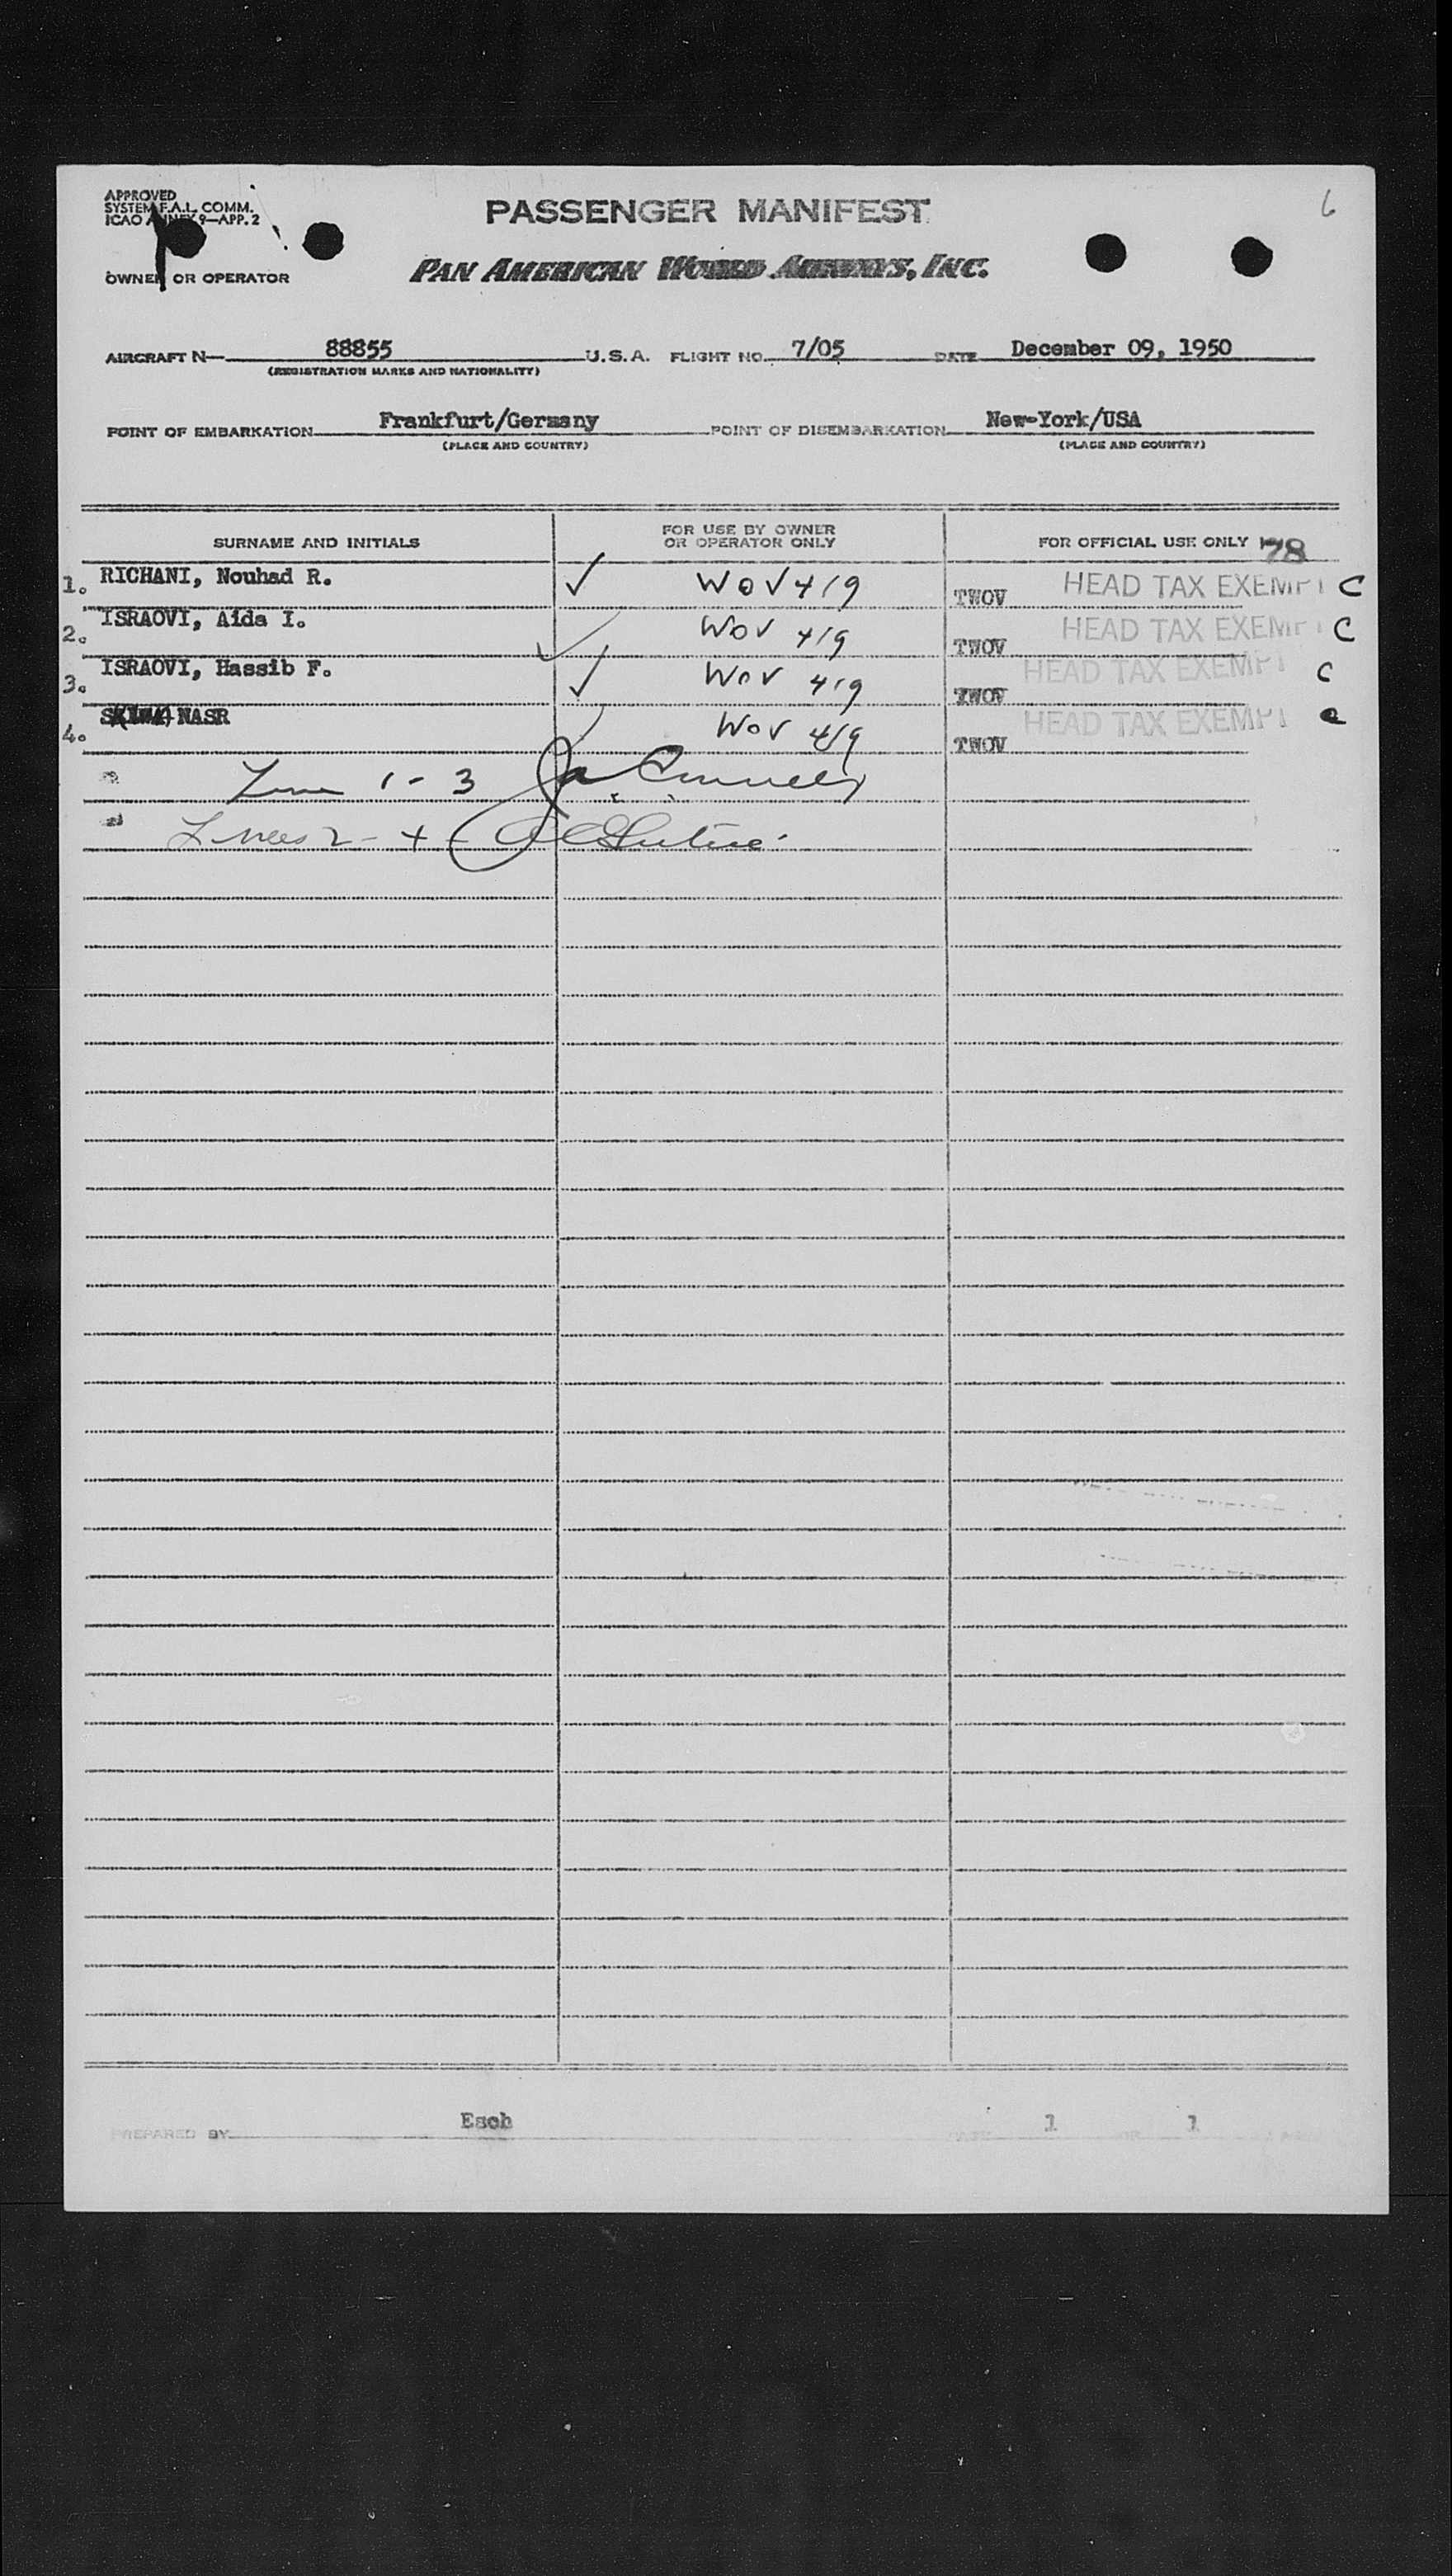 APPROVED
SYSTEM F.A.L. COMM.
ICAO ANNEX 9—APP. 2
PASSENGER MANIFEST
6
OWNER OR OPERATOR
PAN AMERICAN WORLD AIRWAYS, INC.
AIRCRAFT N— 88855 U.S.A. FLIGHT NO. 7/05 DATE December 09, 1950
(REGISTRATION MARKS AND NATIONALITY)
POINT OF EMBARKATION Frankfurt/Germany POINT OF DISEMBARKATION New-York/USA
(PLACE AND COUNTRY) (PLACE AND COUNTRY)
SURNAME AND INITIALS FOR USE BY OWNER OR OPERATOR ONLY FOR OFFICIAL USE ONLY 78
1. RICHANI, Nouhad R. ✓ WOV 419 TWOV HEAD TAX EXEMPT C
2. ISRAOVI, Aida I. ✓ WOV 419 TWOV HEAD TAX EXEMPT C
3. ISRAOVI, Hassib F. ✓ WOV 419 TWOV HEAD TAX EXEMPT C
4. NASR WOV 419 TWOV HEAD TAX EXEMPT C
1 - 3
Lines 2 - 4
PREPARED BY Esch PAGE 1 OF 1